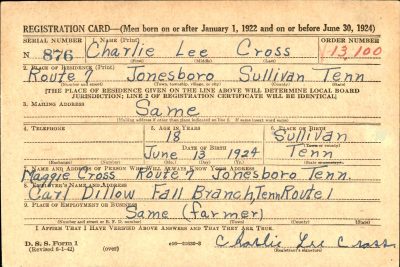 REGISTRATION CARD—(Men born on or after January 1, 1922 and on or before June 30, 1924)
SERIAL NUMBER 1. NAME (Print) ORDER NUMBER
N 876 Charlie Lee Cross 13,100
(First) (Middle) (Last)
2. PLACE OF RESIDENCE (Print)
Route 7 Jonesboro Sullivan Tenn
[THE PLACE OF RESIDENCE GIVEN ON THE LINE ABOVE WILL DETERMINE LOCAL BOARD
JURISDICTION; LINE 2 OF REGISTRATION CERTIFICATE WILL BE IDENTICAL]
3. MAILING ADDRESS
Same
(Mailing address if other than place indicated on line 2. If same insert word same)
4. TELEPHONE 5. AGE IN YEARS 6. PLACE OF BIRTH
18 Sullivan
DATE OF BIRTH (Town or county)
June 13 1924 Tenn
(Exchange) (Number) (Mo.) (Day) (Yr.) (State or country)
7. NAME AND ADDRESS OF PERSON WHO WILL ALWAYS KNOW YOUR ADDRESS
Maggie Cross Route 7 Jonesboro Tenn.
8. EMPLOYER'S NAME AND ADDRESS
Carl Dillow Fall Branch, Tenn Route 1
9. PLACE OF EMPLOYMENT OR BUSINESS
Same (farmer)
(Number and street or R. F. D. number) (Town) (County) (State)
I AFFIRM THAT I HAVE VERIFIED ABOVE ANSWERS AND THAT THEY ARE TRUE.
D. S. S. Form 1
(Revised 6-1-42) (over) Charlie Lee Cross